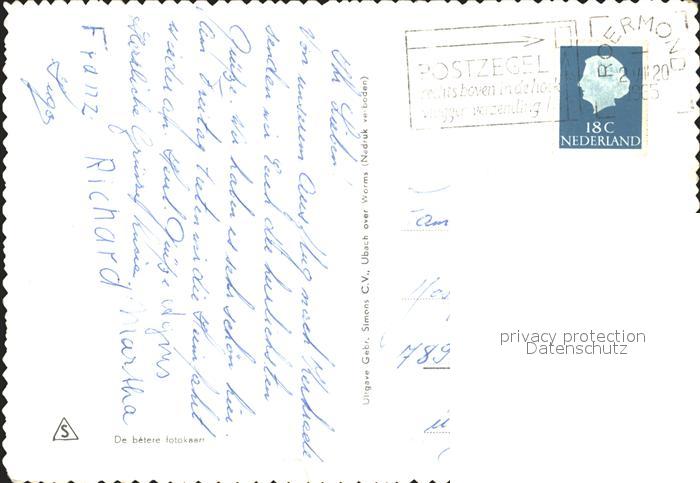 Ihr Lieben!
Von unserem Ausflug nach Kerkrade
senden wir Euch die herzlichsten
Grüße. Wir haben es sehr schön hier.
Am Freitag treten wir die Heimfahrt
wieder an. Grüße Agnes
Herzliche Grüsse
Franz Richard Martha
De bétere fotokaart
S
Uitgave Gebr. Simons C.V., Ubach over Worms (Nadruk verboden)
POSTZEGEL
rechts boven in de hoek
vlugger verzending!
ROERMOND
20
1965
18 C
NEDERLAND
Fam
789
privacy protection
Datenschutz